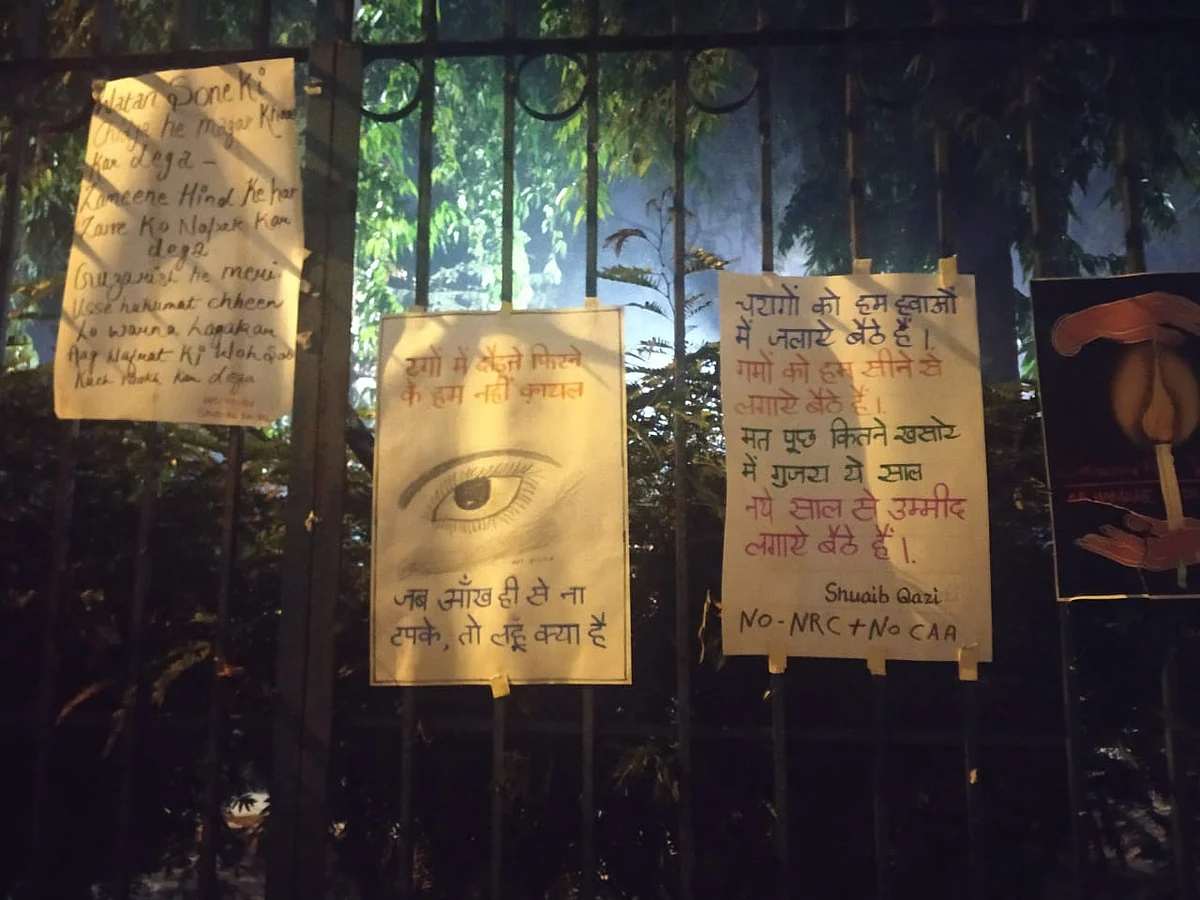 Watan Sone Ki
Chidya he magar Khaak
Kar dega –
Zameene Hind Ke har
Zarre Ko Napak Kar
dega
Guzarish he meri
Usse hukumat chheen
Lo warna lagakar
Aag Nafrat Ki Woh Sab
Kuch Raakh Kar dega
रगों में दौड़ने फिरने
के हम नहीं क़ायल
जब आँख ही से ना
टपके, तो लहूँ क्या है
चरागों को हम हवाओं
में जलाऐ बैठे हैं।
गमों को हम सीने से
लगाऐ बैठे हैं।
मत पूछ कितने खसारे
में गुजरा ये साल
नये साल से उम्मीद
लगाऐ बैठे हैं।
Shuaib Qazi
NO-NRC+NO CAA